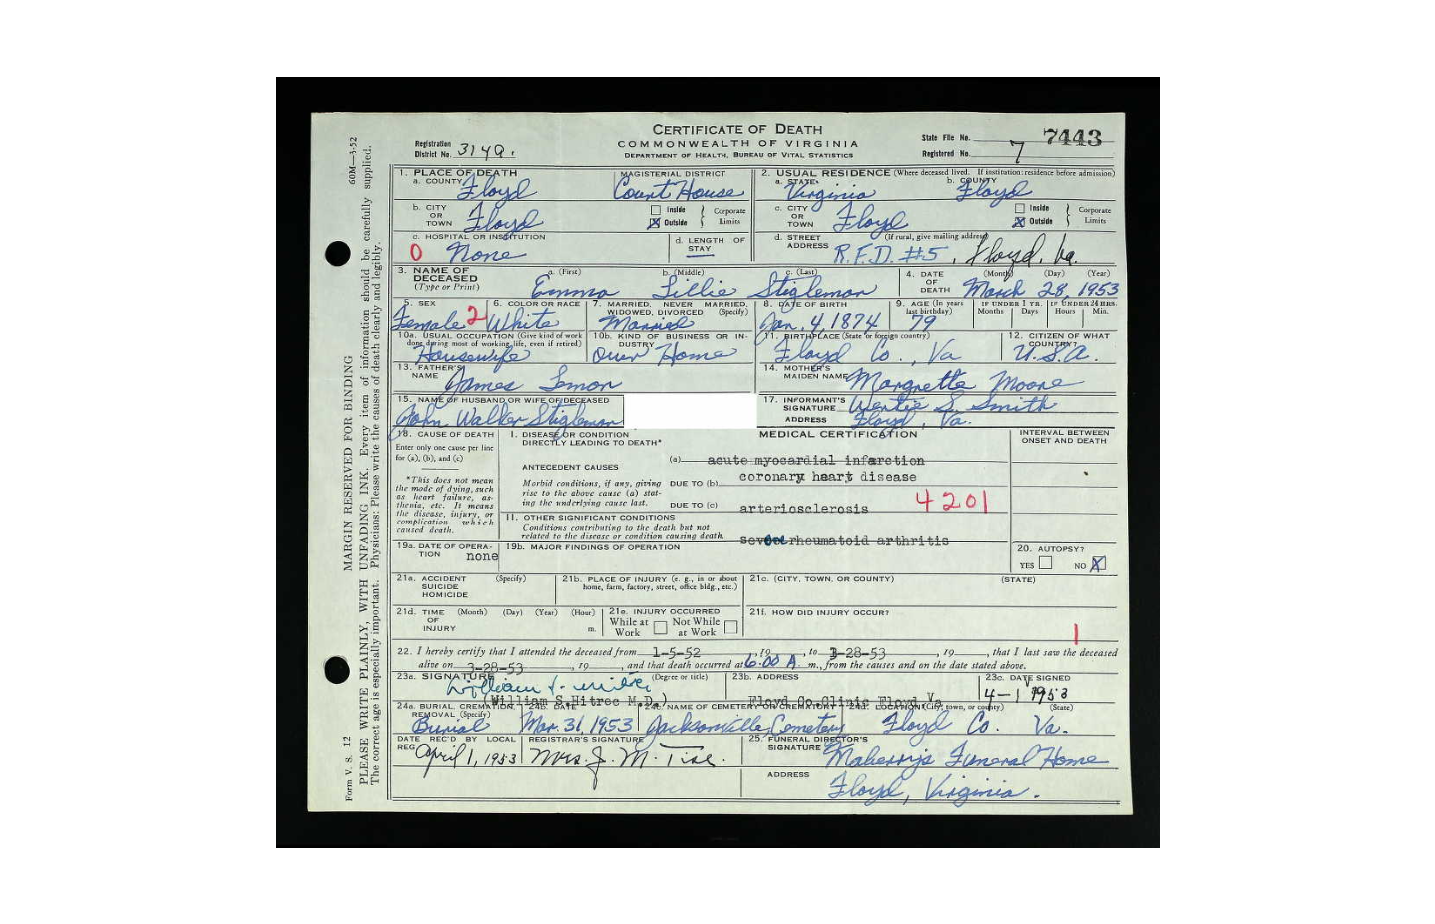 CERTIFICATE OF DEATH
COMMONWEALTH OF VIRGINIA
DEPARTMENT OF HEALTH, BUREAU OF VITAL STATISTICS
Registration District No. 3149.
State File No. 7443
Registered No. 7
60M—3-52
MARGIN RESERVED FOR BINDING
PLEASE WRITE PLAINLY, WITH UNFADING INK. Every item of information should be carefully supplied.
The correct age is especially important. Physicians: Please write the causes of death clearly and legibly.
Form V. S. 12
1. PLACE OF DEATH
a. COUNTY Floyd
MAGISTERIAL DISTRICT Court House
2. USUAL RESIDENCE (Where deceased lived. If institution: residence before admission)
a. STATE Virginia
b. COUNTY Floyd
b. CITY OR TOWN Floyd
Inside
Outside
Corporate Limits
c. CITY OR TOWN Floyd
Inside
Outside
Corporate Limits
c. HOSPITAL OR INSTITUTION
0 None
d. LENGTH OF STAY
d. STREET ADDRESS (If rural, give mailing address)
R.F.D. #5, Floyd, Va.
3. NAME OF DECEASED (Type or Print)
a. (First) Emma
b. (Middle) Lillie
c. (Last) Stigleman
4. DATE OF DEATH (Month) (Day) (Year)
March 28, 1953
5. SEX
Female 2
6. COLOR OR RACE
White
7. MARRIED, NEVER MARRIED, WIDOWED, DIVORCED (Specify)
Married
8. DATE OF BIRTH
Jan. 4, 1874
9. AGE (In years last birthday)
79
IF UNDER 1 YR. Months Days
IF UNDER 24 HRS. Hours Min.
10a. USUAL OCCUPATION (Give kind of work done during most of working life, even if retired)
Housewife
10b. KIND OF BUSINESS OR INDUSTRY
Own Home
11. BIRTHPLACE (State or foreign country)
Floyd Co., Va
12. CITIZEN OF WHAT COUNTRY?
U.S.A.
13. FATHER'S NAME
James Lemon
14. MOTHER'S MAIDEN NAME
Margrette Moore
15. NAME OF HUSBAND OR WIFE OF DECEASED
John Walker Stigleman
17. INFORMANT'S SIGNATURE
S. Smith
ADDRESS Floyd, Va.
18. CAUSE OF DEATH
Enter only one cause per line for (a), (b), and (c)
*This does not mean the mode of dying, such as heart failure, asthenia, etc. It means the disease, injury, or complication which caused death.
MEDICAL CERTIFICATION
INTERVAL BETWEEN ONSET AND DEATH
I. DISEASE OR CONDITION DIRECTLY LEADING TO DEATH*
(a) acute myocardial infarction
ANTECEDENT CAUSES
Morbid conditions, if any, giving rise to the above cause (a) stating the underlying cause last.
DUE TO (b) coronary heart disease
DUE TO (c) arteriosclerosis
4201
II. OTHER SIGNIFICANT CONDITIONS
Conditions contributing to the death but not related to the disease or condition causing death.
severe rheumatoid arthritis
19a. DATE OF OPERATION none
19b. MAJOR FINDINGS OF OPERATION
20. AUTOPSY?
YES NO X
21a. ACCIDENT SUICIDE HOMICIDE (Specify)
21b. PLACE OF INJURY (e. g., in or about home, farm, factory, street, office bldg., etc.)
21c. (CITY, TOWN, OR COUNTY) (STATE)
21d. TIME OF INJURY (Month) (Day) (Year) (Hour) m.
21e. INJURY OCCURRED
While at Work Not While at Work
21f. HOW DID INJURY OCCUR?
1
22. I hereby certify that I attended the deceased from 1-5-52, 19, to 3-28-53, 19, that I last saw the deceased
alive on 3-28-53, 19, and that death occurred at 6:00 A m., from the causes and on the date stated above.
23a. SIGNATURE (Degree or title)
(William S. Hitrec M.D.)
23b. ADDRESS
Floyd Co. Clinic Floyd Va
23c. DATE SIGNED
4-1 1953
24a. BURIAL, CREMATION, REMOVAL (Specify)
Burial
24b. DATE
Mar. 31, 1953
24c. NAME OF CEMETERY OR CREMATORY
Jacksonville Cemetery
24d. LOCATION (City, town, or county) (State)
Floyd Co. Va.
DATE REC'D BY LOCAL REG.
April 1, 1953
REGISTRAR'S SIGNATURE
Mrs. J. M.
25. FUNERAL DIRECTOR'S SIGNATURE
Funeral Home
ADDRESS
Floyd, Virginia.